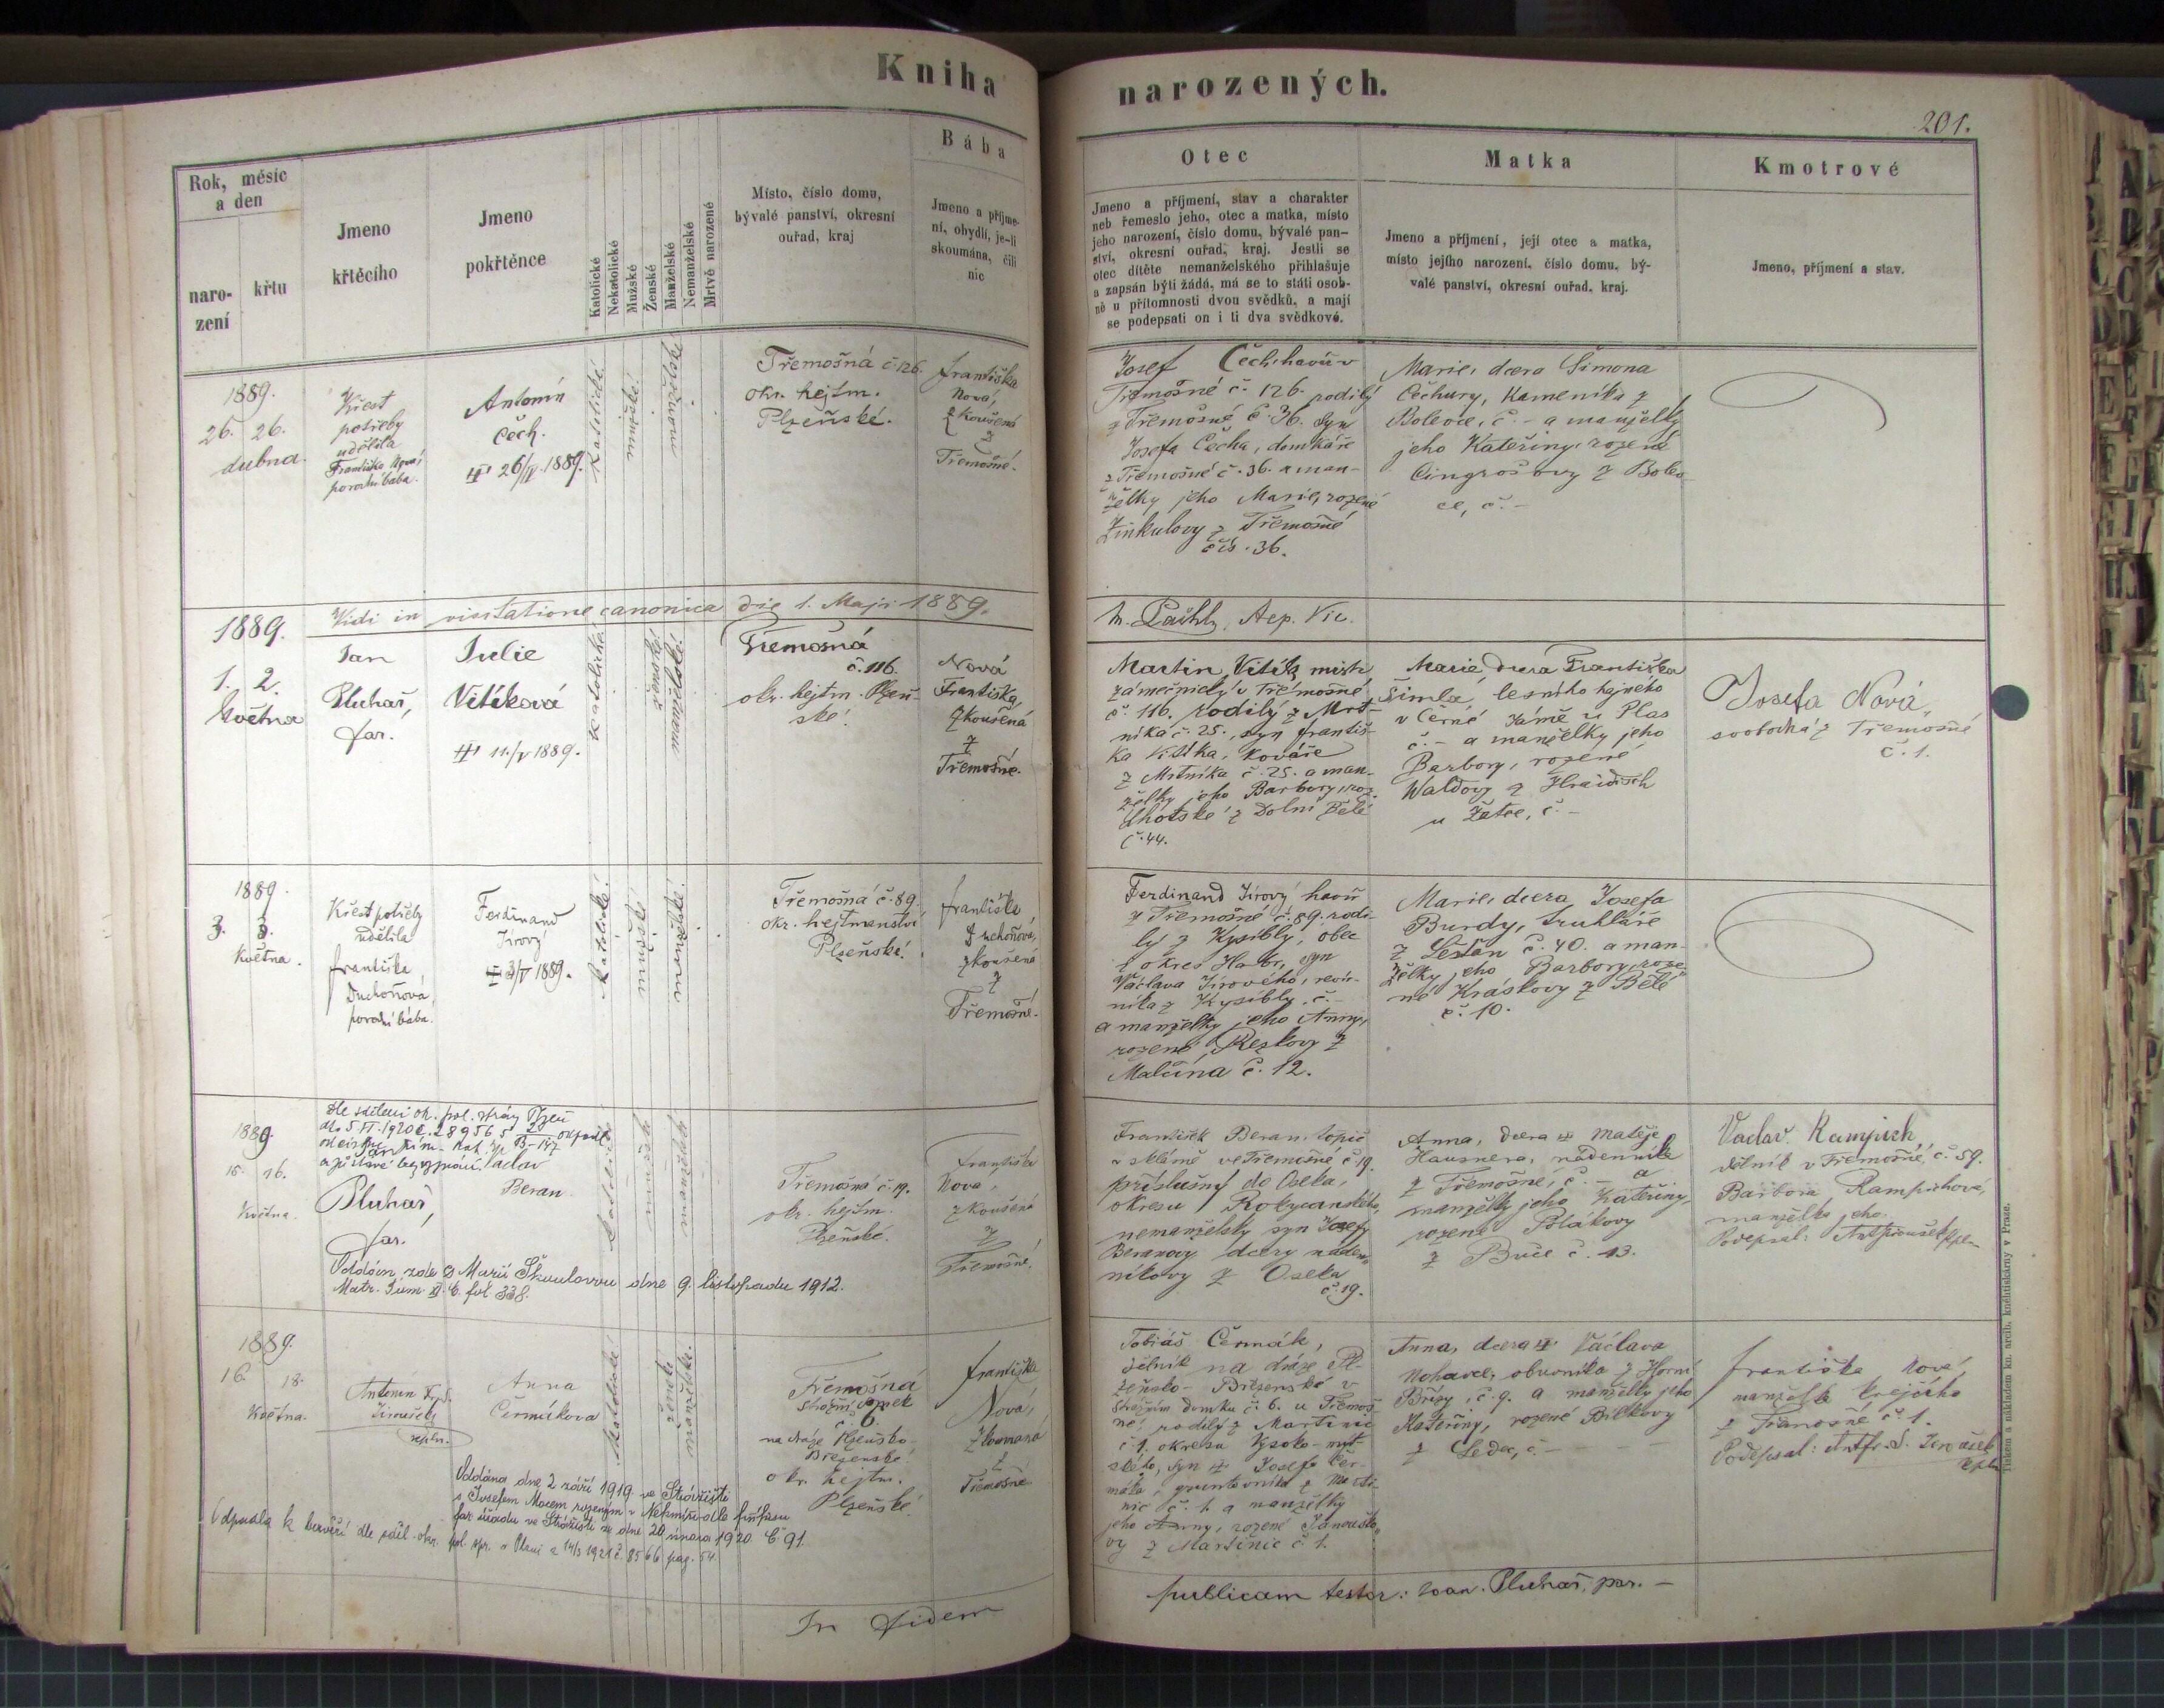 Kniha
narozených.
201.
Rok, měsíc
a den
naro-
zení
křtu
Jmeno
křtěcího
Jmeno
pokřtěnce
Katolické
Nekatolické
Mužské
Ženské
Manželské
Nemanželské
Mrtvě narozené
Místo, číslo domu,
bývalé panství, okresní
ouřad, kraj
Bába
Jmeno a příjme-
ní, obydlí, je-li
skoumána, čili
nic
Otec
Jmeno a příjmení, stav a charakter
neb řemeslo jeho, otec a matka, místo
jeho narození, číslo domu, bývalé pan-
ství, okresní ouřad, kraj. Jestli se
otec dítěte nemanželského přihlašuje
a zapsán býti žádá, má se to státi osob-
ně u přítomnosti dvou svědků, a mají
se podepsati on i ti dva svědkové.
Matka
Jmeno a příjmení, její otec a matka,
místo jejího narození, číslo domu, bý-
valé panství, okresní ouřad, kraj.
Kmotrové
Jmeno, příjmení a stav.
1889.
26. 26.
dubna.
Křest
potřeby
udělila
Františka Nová,
porodní bába.
Antonín
Čech.
26/IV. 1889.
katolické.
mužské.
manželské
Třemošná č. 126.
okr. hejtm.
Plzeňské.
Františka
Nová,
zkoušená
z
Třemošné.
Josef Čech, havíř v
Třemošné č. 126. rodilý
z Třemošné č. 36. syn
Josefa Čecha, domkáře
z Třemošné č. 36. a man-
želky jeho Marie, rozené
Žinkulovy z Třemošné
čís. 36.
Marie, dcera Šimona
Čechury, kameníka z
Bolevce, č. - a manželky
jeho Kateřiny, rozené
Cingrošovy z Bolev-
ce, č. -
Vidi in visitatione canonica die 1. Maji 1889.
Aep. Vic.
1889.
1. 2.
května
Jan
Pluhař,
far.
Julie
Vítíková
11./V 1889.
katolické
ženské
manželské
Třemošná
č. 116.
okr. hejtm. Plzeň-
ské.
Nová
Františka,
zkoušená
z
Třemošné.
Martin Vitík, mistr
zámečnický v Třemošné
č. 116. rodilý z Mrt-
níka č. 25., syn Františ-
ka Vitíka, kováře
z Mrtníka č. 25. a man-
želky jeho Barbory, roz.
Lhotské z Dolní Bělé
č. 44.
Marie, dcera Františka
Šimla, lesního hajného
v Černé Jámě u Plas
č. - a manželky jeho
Barbory, rozené
Waldovy z
u Žatce, č. -
Josefa Nová,
svobodná z Třemošné
č. 1.
1889.
3. 3.
května.
Křest potřeby
udělila
Františka
Duchoňová,
porodní bába.
Ferdinand
Jírový
3/V 1889.
katolické.
mužské
manželské.
Třemošná č. 89.
okr. hejtmanství
Plzeňské.
Františka
Duchoňová,
zkoušená
z
Třemošné.
Ferdinand Jírový, havíř
z Třemošné č. 89. rodi-
lý z Kysibly, obec
okres Habr, syn
Václava Jírového, revír-
níka z Kysibly, č. -
a manželky jeho Anny,
rozené Rezkovy z
Malčína č. 12.
Marie, dcera Josefa
Burdy, truhláře
z č. 40. a man-
želky jeho Barbory, roze-
né Kráskovy z Bělé
č. 10.
1889.
15. 16.
května.
Dle sdělení ok. pol. správy Plzeň
Václav
Beran
Pluhař,
far.
katolické
mužské
manželské
Třemošná č. 19.
okr. hejtm.
Plzeňské.
Františka
Nová,
zkoušená
z
Třemošné.
Oddán zde s Marií Škoulovou dne 9. listopadu 1912.
Matr. fol. 338.
František Beran, topič
v sklárně ve Třemošné č. 19.
příslušný do Oseka,
okresu Rokycanského,
nemanželský syn Josefy
Beranovy, dcery náden-
níkovy z Oseka
č. 19.
Anna, dcera Matěje
Hausnera, nádenníka
z Třemošné, č. - a
manželky jeho Kateřiny,
rozené Polákovy
z Buče č. 43.
Václav Rampich,
dělník v Třemošné, č. 59.
Barbora Rampichová,
manželka jeho.
Podepsal:
1889.
16. 18.
května.
Antonín
Jiroušek
Anna
Čermákova
katolické
ženské
manželské.
Třemošná
strážní domek
č. 6.
na dráze Plzeňsko-
Březenské
okr. hejtm.
Plzeňské.
Františka
Nová,
zkoumaná
z
Třemošné
Oddána dne 2 září 1919 ve
s Josefem Macem rozeným v Nekmíři dle přípisu
far. úřadu ve ze dne 20 února 1920. č. 91
Tobiáš Čermák,
dělník na dráze Pl-
zeňsko-Březenské v
strážním domku č. 6. u Třemoš-
né, rodilý z Martinic
č. 1. okresu Vysoko-mýt-
ského, syn Josefa Čer-
máka, gruntovníka z Marti-
nic č. 1. a manželky
jeho Anny, rozené Janouško-
vy z Martinic č. 1.
Anna, dcera Václava
Nohavce, obuvníka z Horní
Břízy, č. 9. a manželky jeho
Kateřiny, rozené Bílkovy
z Ledec, č. -
Františka Nová,
manželka krejčího
z Třemošné č. 1.
Podepsal:
In fidem
publicam testor: Joan. Pluhař, par. -
Tiskem a nákladem kn. arcib. knihtiskárny v Praze.